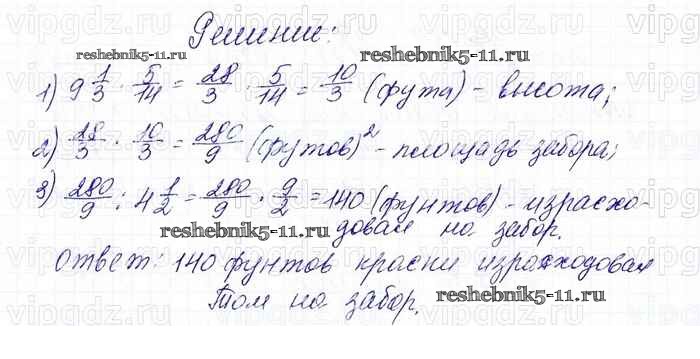 Решение:
reshebnik5-11.ru
reshebnik5-11.ru
1) 9 1/3 · 5/14 = 28/3 · 5/14 = 10/3 (фута) - высота;
2) 28/3 · 10/3 = 280/9 (футов)² - площадь забора;
3) 280/9 : 4 1/2 = 280/9 · 9/2 = 140 (фунтов) - израсхо-
довал на забор.
reshebnik5-11.ru
Ответ: 140 фунтов краски израсходовал
Том на забор.
reshebnik5-11.ru